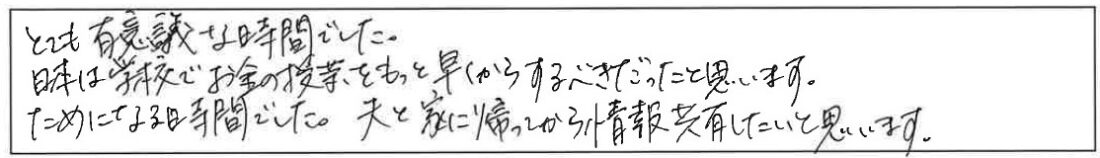 とても有意議な時間でした。
日本は学校でお金の授業をもっと早くからするべきだったと思います。
ためになる時間でした。夫と家に帰ってから情報共有したいと思います。